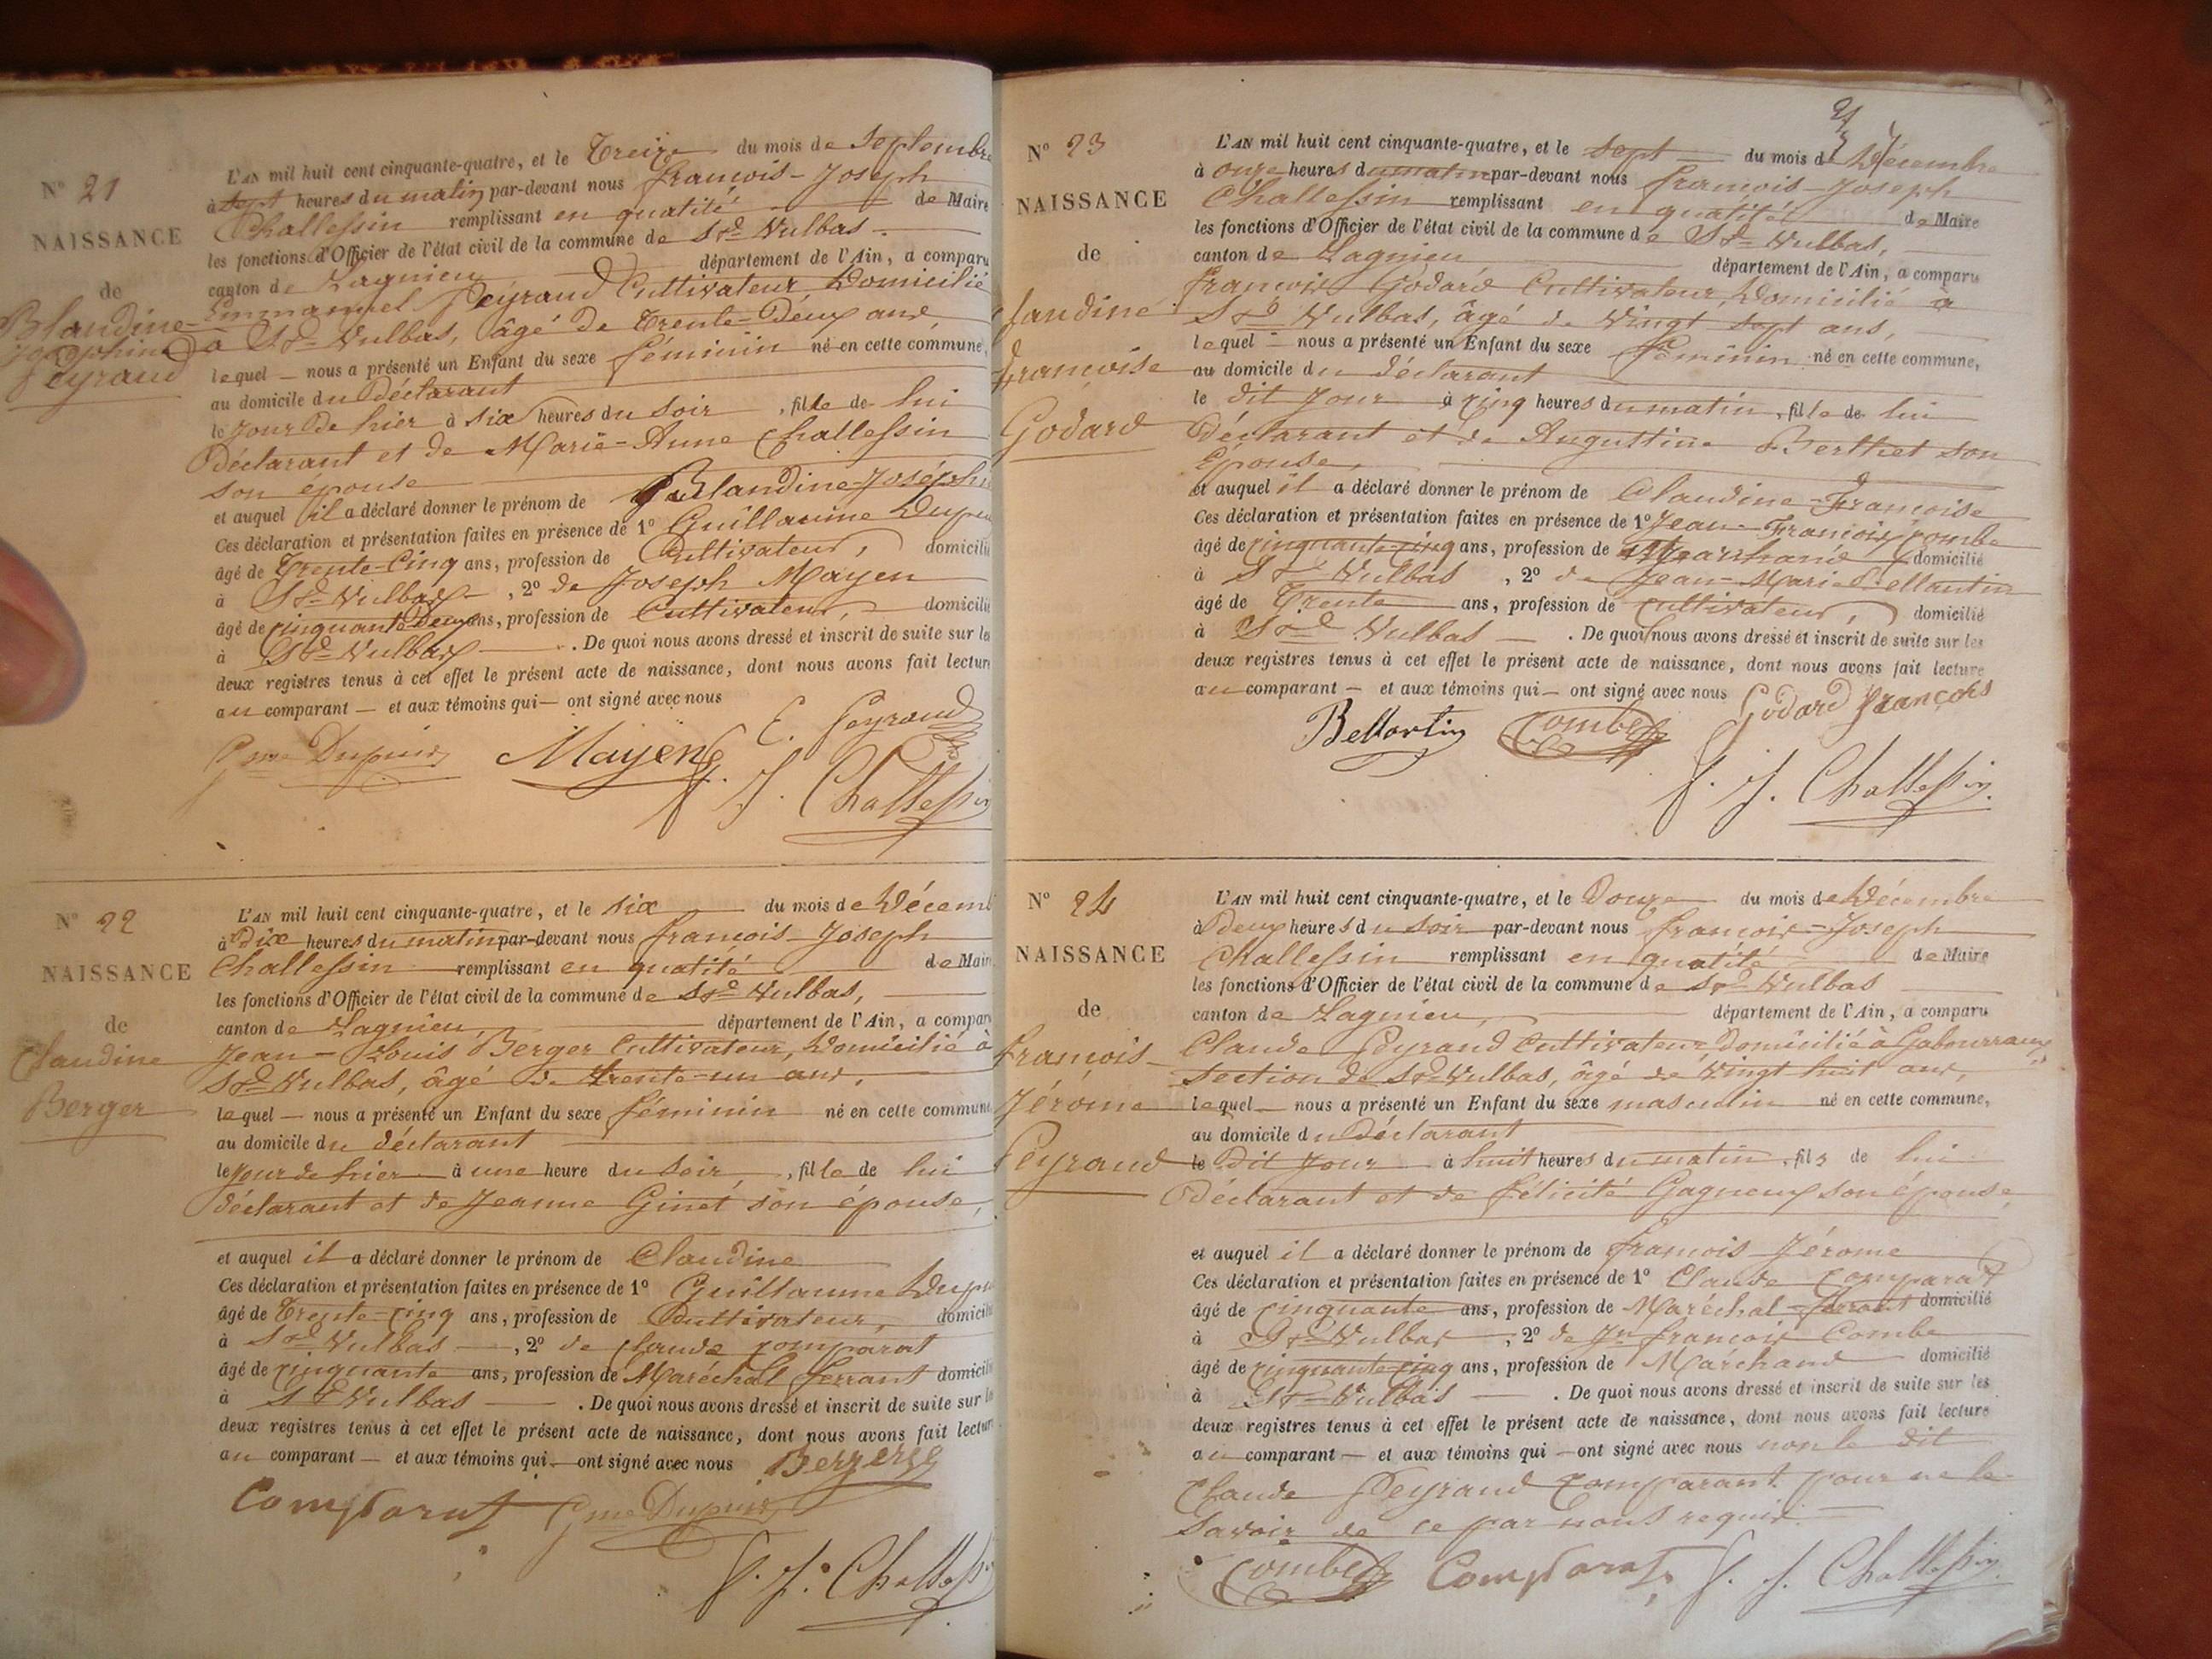 N° 21
NAISSANCE
de
Blandine-
Joséphine
Peyraud
L'AN mil huit cent cinquante-quatre, et le Treize du mois de Septembre
à sept heures du matin par-devant nous françois-Joseph
Challessin remplissant en qualité de Maire
les fonctions d'Officier de l'état civil de la commune de St Vulbas
canton de Lagnieu département de l'Ain, a comparu
Emmanuel Peyraud Cultivateur Domicilié
à St Vulbas, âgé de Trente-Deux ans,
lequel nous a présenté un Enfant du sexe féminin né en cette commune,
au domicile du Déclarant
le jour de hier à six heures du soir, fille de lui
Déclarant et de Marie-Anne Challessin
son épouse
et auquel il a déclaré donner le prénom de Blandine-Joséphi
Ces déclaration et présentation faites en présence de 1° Guillaume Dupu
âgé de Trente-Cinq ans, profession de Cultivateur, domicilié
à St Vulbas, 2° de Joseph Mayen
âgé de cinquante Deux ans, profession de Cultivateur, domicilié
à St Vulbas. De quoi nous avons dressé et inscrit de suite sur les
deux registres tenus à cet effet le présent acte de naissance, dont nous avons fait lecture
au comparant et aux témoins qui ont signé avec nous
E. Peyraud
Gme Dupuis Mayen
f. J. Challessin
N° 22
NAISSANCE
de
Claudine
Berger
L'AN mil huit cent cinquante-quatre, et le six du mois de Décem
à Dix heures du matin par-devant nous françois-Joseph
Challessin remplissant en qualité de Maire
les fonctions d'Officier de l'état civil de la commune de St Vulbas,
canton de Lagnieu, département de l'Ain, a comparu
Jean-Louis Berger Cultivateur, Domicilié à
St Vulbas, âgé de trente-un ans,
lequel nous a présenté un Enfant du sexe féminin né en cette commune
au domicile du déclarant
le jour de hier à une heure du soir, fille de lui
déclarant et de Jeanne Ginet son épouse,
et auquel il a déclaré donner le prénom de Claudine
Ces déclaration et présentation faites en présence de 1° Guillaume Dupu
âgé de Trente-cinq ans, profession de Cultivateur, domicilié
à St Vulbas, 2° de Claude Comparat
âgé de cinquante ans, profession de Maréchal ferrant domicilié
à St Vulbas. De quoi nous avons dressé et inscrit de suite sur les
deux registres tenus à cet effet le présent acte de naissance, dont nous avons fait lecture
au comparant et aux témoins qui ont signé avec nous
Comparat Gme Dupuis
f. J. Challessin
N° 23
NAISSANCE
de
Claudine
françoise
Godard
L'AN mil huit cent cinquante-quatre, et le sept du mois de Décembre
à onze heures du matin par-devant nous françois-Joseph
Challessin remplissant en qualité de Maire
les fonctions d'Officier de l'état civil de la commune de St Vulbas,
canton de Lagnieu département de l'Ain, a comparu
françois Godard Cultivateur, Domicilié à
St Vulbas, âgé de Vingt sept ans,
lequel nous a présenté un Enfant du sexe féminin né en cette commune,
au domicile du déclarant
le dit jour à cinq heures du matin, fille de lui
Déclarant et de Augustine Berthet son
épouse,
et auquel il a déclaré donner le prénom de Claudine-françoise
Ces déclaration et présentation faites en présence de 1° Jean-françois Combe
âgé de cinquante-cinq ans, profession de Marchand domicilié
à St Vulbas, 2° de Jean-Marie Bellantin
âgé de Trente ans, profession de cultivateur, domicilié
à St Vulbas. De quoi nous avons dressé et inscrit de suite sur les
deux registres tenus à cet effet le présent acte de naissance, dont nous avons fait lecture
au comparant et aux témoins qui ont signé avec nous Godard françois
Combe
f. J. Challessin
N° 24
NAISSANCE
de
françois-
Jérôme
Peyraud
L'AN mil huit cent cinquante-quatre, et le Douze du mois de Décembre
à Deux heures du soir par-devant nous françois-Joseph
Challessin remplissant en qualité de Maire
les fonctions d'Officier de l'état civil de la commune de St Vulbas
canton de Lagnieu, département de l'Ain, a comparu
Claude Peyraud Cultivateur Domicilié à Gabourraux
section de St Vulbas, âgé de Vingt huit ans,
lequel nous a présenté un Enfant du sexe masculin né en cette commune,
au domicile du Déclarant
le Dit jour à huit heures du matin, fils de lui
Déclarant et de félicité Gagneux son épouse,
et auquel il a déclaré donner le prénom de françois Jérome
Ces déclaration et présentation faites en présence de 1° Claude Comparat
âgé de cinquante ans, profession de Maréchal-ferrant domicilié
à St Vulbas, 2° de Jn françois Combe
âgé de cinquante-cinq ans, profession de Marchand domicilié
à St Vulbas. De quoi nous avons dressé et inscrit de suite sur les
deux registres tenus à cet effet le présent acte de naissance, dont nous avons fait lecture
au comparant et aux témoins qui ont signé avec nous non le dit
Claude Peyraud comparant pour ne le
savoir de ce par nous requis.
Combe Comparat f. J. Challessin